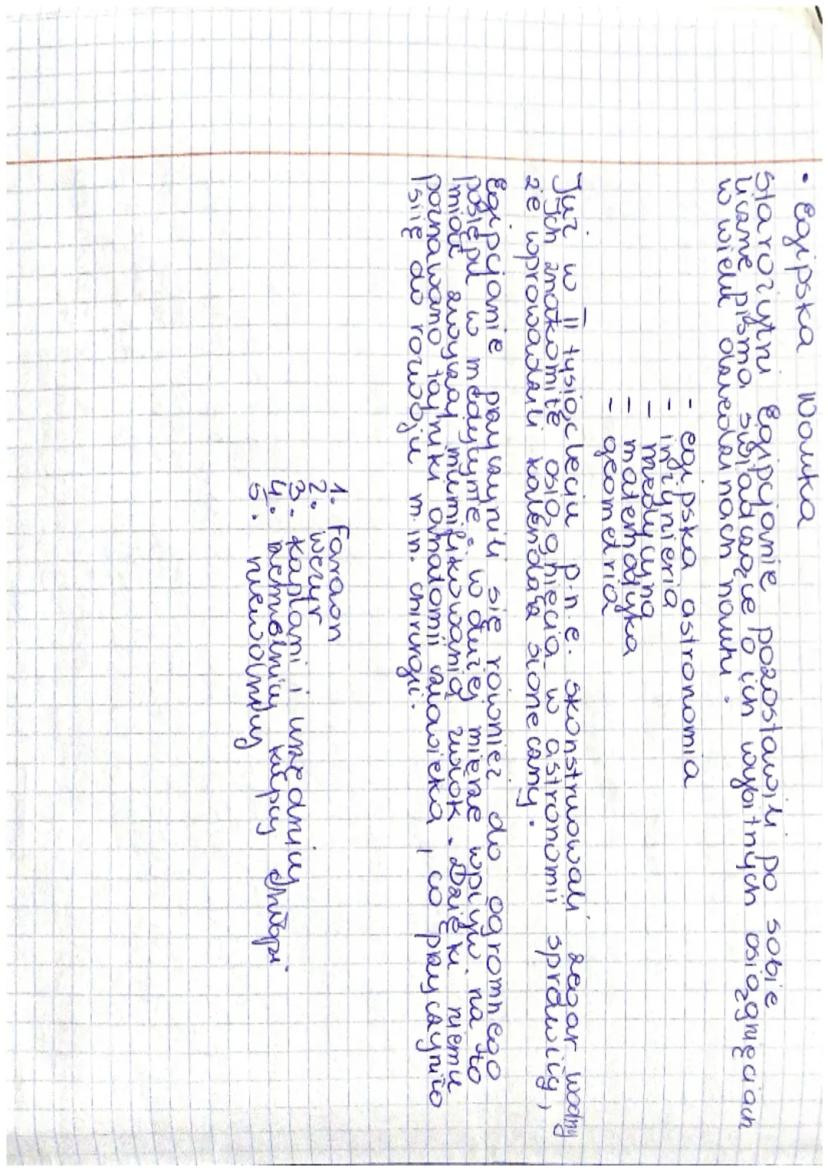 • Egipska Nauka
Starożytni Egipcjanie pozostawili po sobie
liczne pisma świadczące o ich wybitnych osiągnięciach
w wielu dziedzinach nauki.
- egipska astronomia
- inżynieria
- medycyna
- matematyka
- geometria
Już w II tysiącleciu p.n.e. skonstruowali zegar wodny
Ich znakomite osiągnięcia w astronomii sprawiły,
że wprowadzili kalendarz słoneczny.
Egipcjanie przyczynili się również do ogromnego
postępu w medycynie, w dużej mierze wpływ na to
miał zwyczaj mumifikowania zwłok. Dzięki niemu
poznawano tajniki anatomii człowieka, co przyczyniło
się do rozwoju m.in. chirurgii.
1. Faraon
2. wezyr
3. kapłani i urzędnicy
4. rzemieślnicy kupcy chłopi
5. niewolnicy